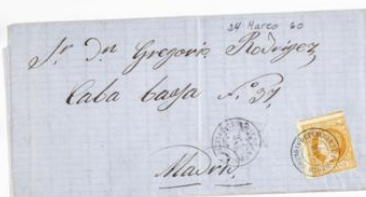 24 Marzo 60
Sr. Dn Gregorio Rodriguez
Caba baja N.º 37
Madrid